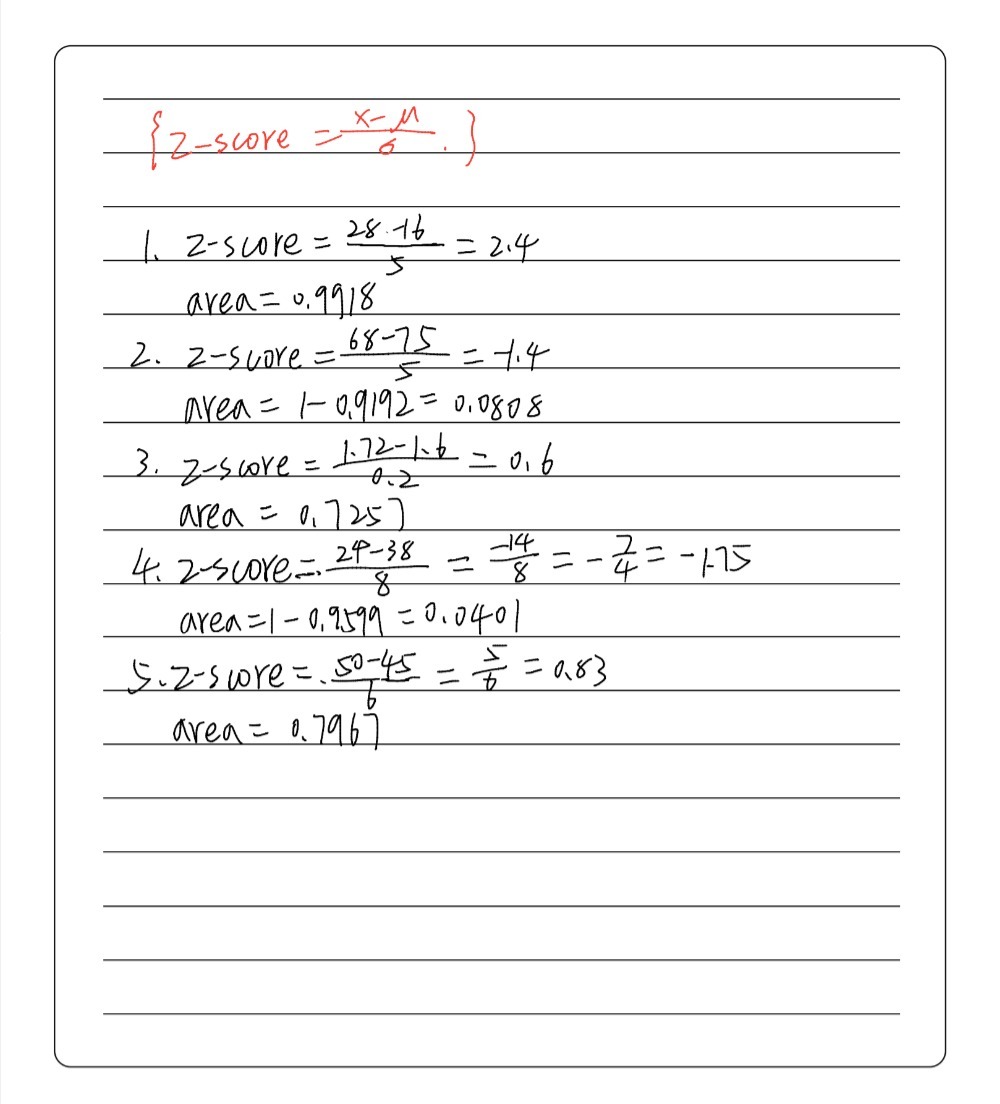 {z-score = x-μ/σ.}
1. z-score = 28-16/5 = 2.4
area = 0.9918
2. z-score = 68-75/5 = -1.4
area = 1-0.9192 = 0.0808
3. z-score = 1.72-1.6/0.2 = 0.6
area = 0.7257
4. z-score = 24-38/8 = -14/8 = -7/4 = -1.75
area = 1-0.9599 = 0.0401
5. z-score = 50-45/6 = 5/6 = 0.83
area = 0.7967